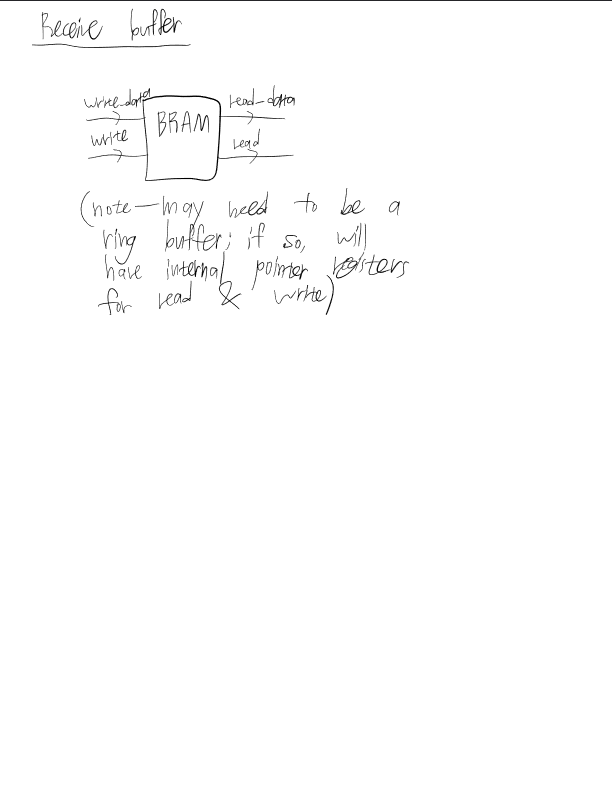 Receive buffer
write_data
read_data
BRAM
write
read
(note — may need to be a
ring buffer; if so, will
have internal pointer registers
for read & write)